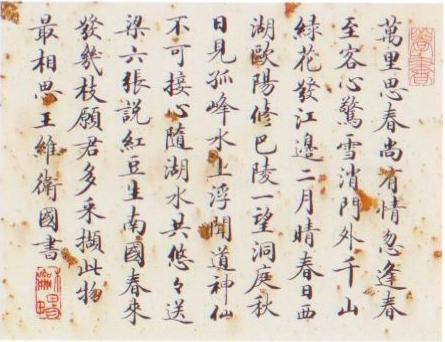 萬里思春尚有情忽逢春
至客心驚雪消門外千山
綠花發江邊二月晴春日西
湖歐陽修巴陵一望洞庭秋
日見孤峰水上浮聞道神仙
不可接心隨湖水共悠々送
梁六張說紅豆生南國春來
發幾枝願君多采擷此物
最相思王維衛國書